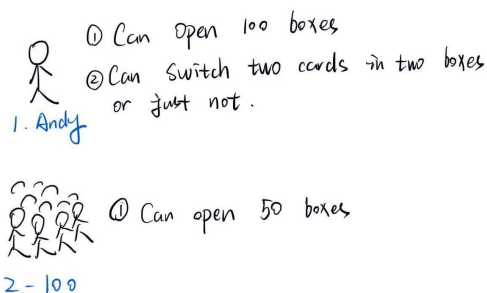 ① Can open 100 boxes
② Can switch two cards in two boxes
or just not.
1. Andy
① Can open 50 boxes
2 - 100